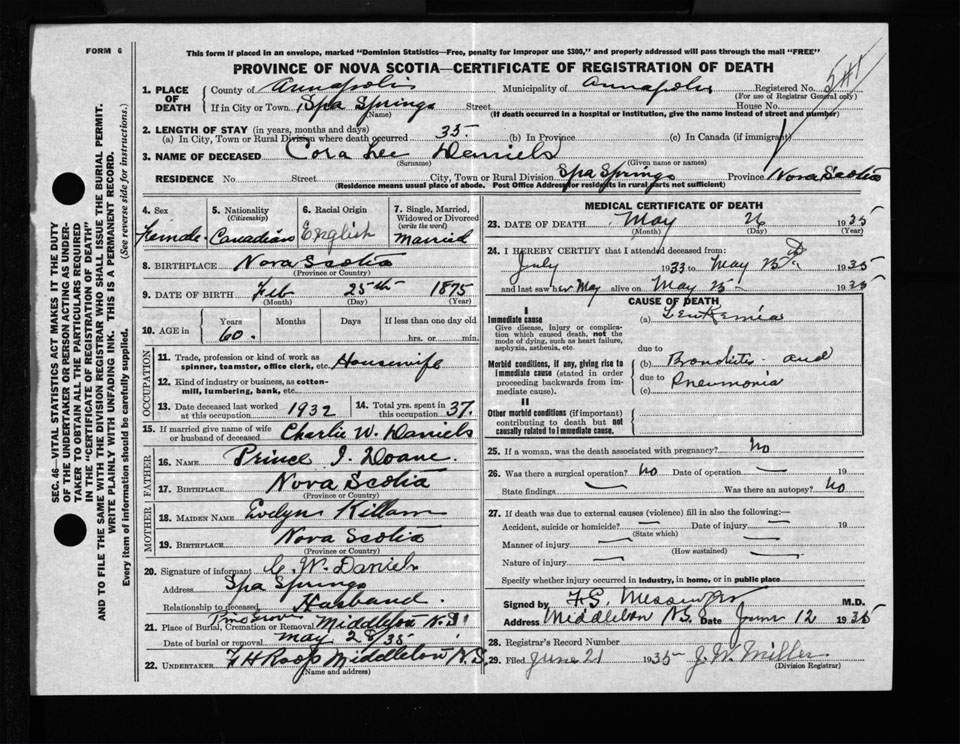 FORM 6
This form if placed in an envelope, marked "Dominion Statistics—Free, penalty for improper use $300," and properly addressed will pass through the mail "FREE"
PROVINCE OF NOVA SCOTIA—CERTIFICATE OF REGISTRATION OF DEATH
SEC. 46—VITAL STATISTICS ACT MAKES IT THE DUTY
OF THE UNDERTAKER OR PERSON ACTING AS UNDER-
TAKER TO OBTAIN ALL THE PARTICULARS REQUIRED
IN THE "CERTIFICATE OF REGISTRATION OF DEATH"
AND TO FILE THE SAME WITH THE DIVISION REGISTRAR WHO SHALL ISSUE THE BURIAL PERMIT.
WRITE PLAINLY WITH UNFADING INK. THIS IS A PERMANENT RECORD.
Every item of information should be carefully supplied. (See reverse side for instructions.)
1. PLACE OF DEATH County of Annapolis Municipality of Annapolis Registered No.
(For use of Registrar General only)
If in City or Town Spa Springs Street House No.
(Name) (If death occurred in a hospital or institution, give the name instead of street and number)
2. LENGTH OF STAY (in years, months and days)
(a) In City, Town or Rural Division where death occurred 35. (b) In Province (c) In Canada (if immigrant)
3. NAME OF DECEASED Cora Lee Daniels
(Surname) (Given name or names)
RESIDENCE No. Street City, Town or Rural Division Spa Springs Province Nova Scotia
(Residence means usual place of abode. Post Office Address for residents in rural parts not sufficient)
4. Sex Female
5. Nationality (Citizenship) Canadian
6. Racial Origin English
7. Single, Married, Widowed or Divorced (write the word) Married
8. BIRTHPLACE Nova Scotia
(Province or Country)
9. DATE OF BIRTH Feb 25th 1875
(Month) (Day) (Year)
10. AGE in Years Months Days If less than one day old
60. hrs. or min.
OCCUPATION
11. Trade, profession or kind of work as spinner, teamster, office clerk, etc. Housewife
12. Kind of industry or business, as cotton-mill, lumbering, bank, etc.
13. Date deceased last worked at this occupation 1932 14. Total yrs. spent in this occupation 37.
15. If married give name of wife or husband of deceased Charlie W. Daniels
FATHER
16. NAME Prince I. Doane.
17. BIRTHPLACE Nova Scotia
(Province or Country)
MOTHER
18. MAIDEN NAME Evelyn Killam
19. BIRTHPLACE Nova Scotia
(Province or Country)
20. Signature of informant C. W. Daniels
Address Spa Springs
Relationship to deceased Husband.
21. Place of Burial, Cremation or Removal Pine Grove Middleton N.S.
Date of burial or removal May 28/35
22. UNDERTAKER F H Roop Middleton N.S.
(Name and address)
MEDICAL CERTIFICATE OF DEATH
23. DATE OF DEATH May 26 1935
(Month) (Day) (Year)
24. I HEREBY CERTIFY that I attended deceased from:
July 1933 to May 25 1935
and last saw her alive on May 25 1935
CAUSE OF DEATH
I
Immediate cause
Give disease, injury or complication which caused death, not the mode of dying, such as heart failure, asphyxia, asthenia, etc.
(a) Leukemia
due to
Morbid conditions, if any, giving rise to immediate cause (stated in order proceeding backwards from immediate cause).
(b) Bronchitis and
due to Pneumonia
(c)
II
Other morbid conditions (if important) contributing to death but not causally related to immediate cause.
25. If a woman, was the death associated with pregnancy? No
26. Was there a surgical operation? No Date of operation — 19
State findings — Was there an autopsy? No
27. If death was due to external causes (violence) fill in also the following:—
Accident, suicide or homicide? — Date of injury — 19
(State which)
Manner of injury —
(How sustained)
Nature of injury —
Specify whether injury occurred in industry, in home, or in public place
Signed by F.S. Messenger M.D.
Address Middleton N.S. Date June 12 1935
28. Registrar's Record Number
29. Filed June 21 1935 J. W. Miller
(Division Registrar)